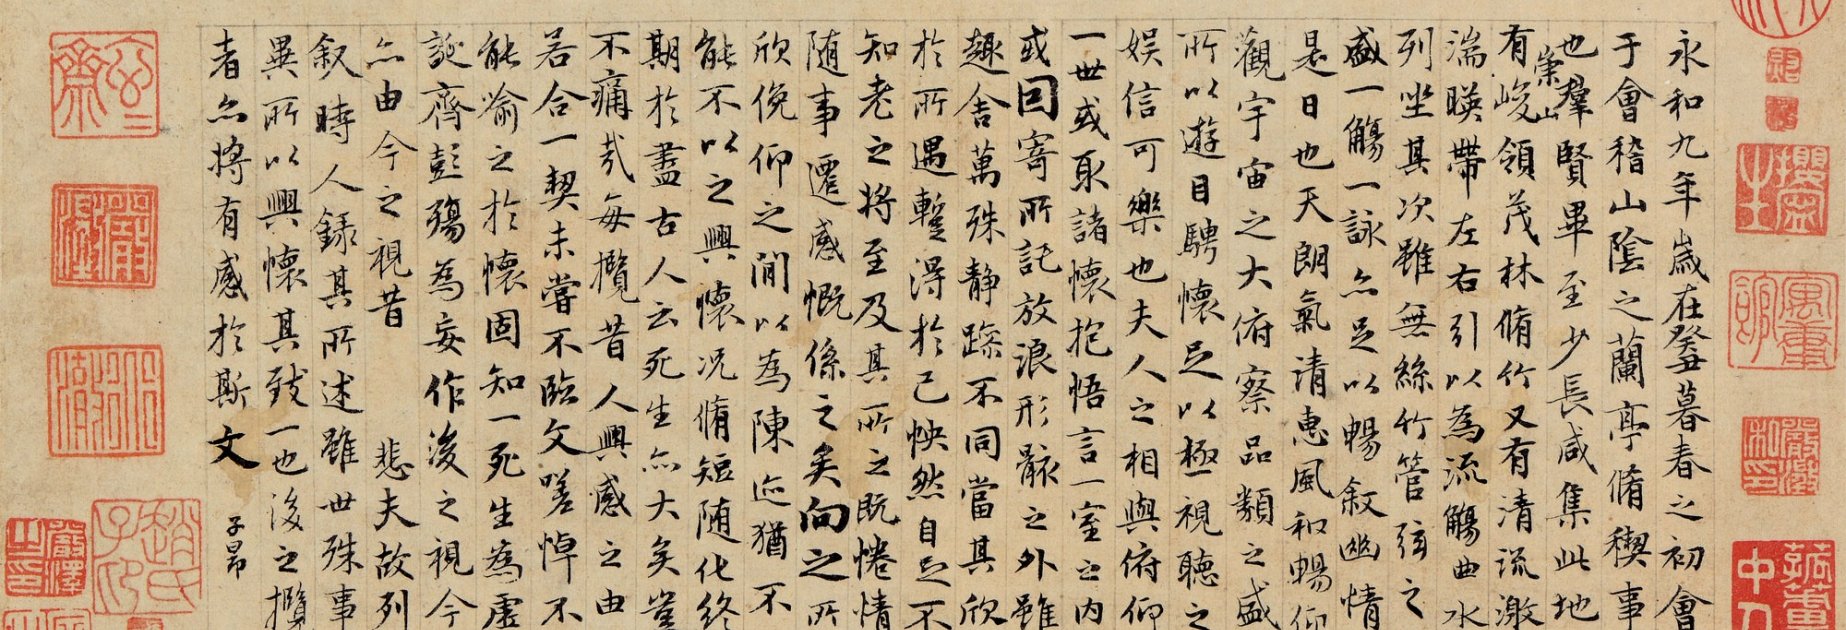 永和九年歲在癸丑暮春之初會
于會稽山陰之蘭亭脩稧事
也羣賢畢至少長咸集此地
有崇山峻領茂林脩竹又有清流激
湍暎帶左右引以為流觴曲水
列坐其次雖無絲竹管弦之
盛一觴一詠亦足以暢敘幽情
是日也天朗氣清惠風和暢仰
觀宇宙之大俯察品類之盛
所以遊目騁懷足以極視聽之
娱信可樂也夫人之相與俯仰
一世或取諸懷抱悟言一室之内
或因寄所託放浪形骸之外雖
趣舍萬殊静躁不同當其欣
於所遇蹔得於己怏然自足不
知老之将至及其所之既惓情
随事遷感慨係之矣向之所
欣俛仰之間以為陳迹猶不
能不以之興懷况脩短随化終
期於盡古人云死生亦大矣豈
不痛哉每攬昔人興感之由
若合一契未嘗不臨文嗟悼不
能喻之於懷固知一死生為虚
誕齊彭殤為妄作後之視今
亦由今之視昔 悲夫故列
叙時人録其所述雖世殊事
異所以興懷其致一也後之攬
者亦将有感於斯文
子昂